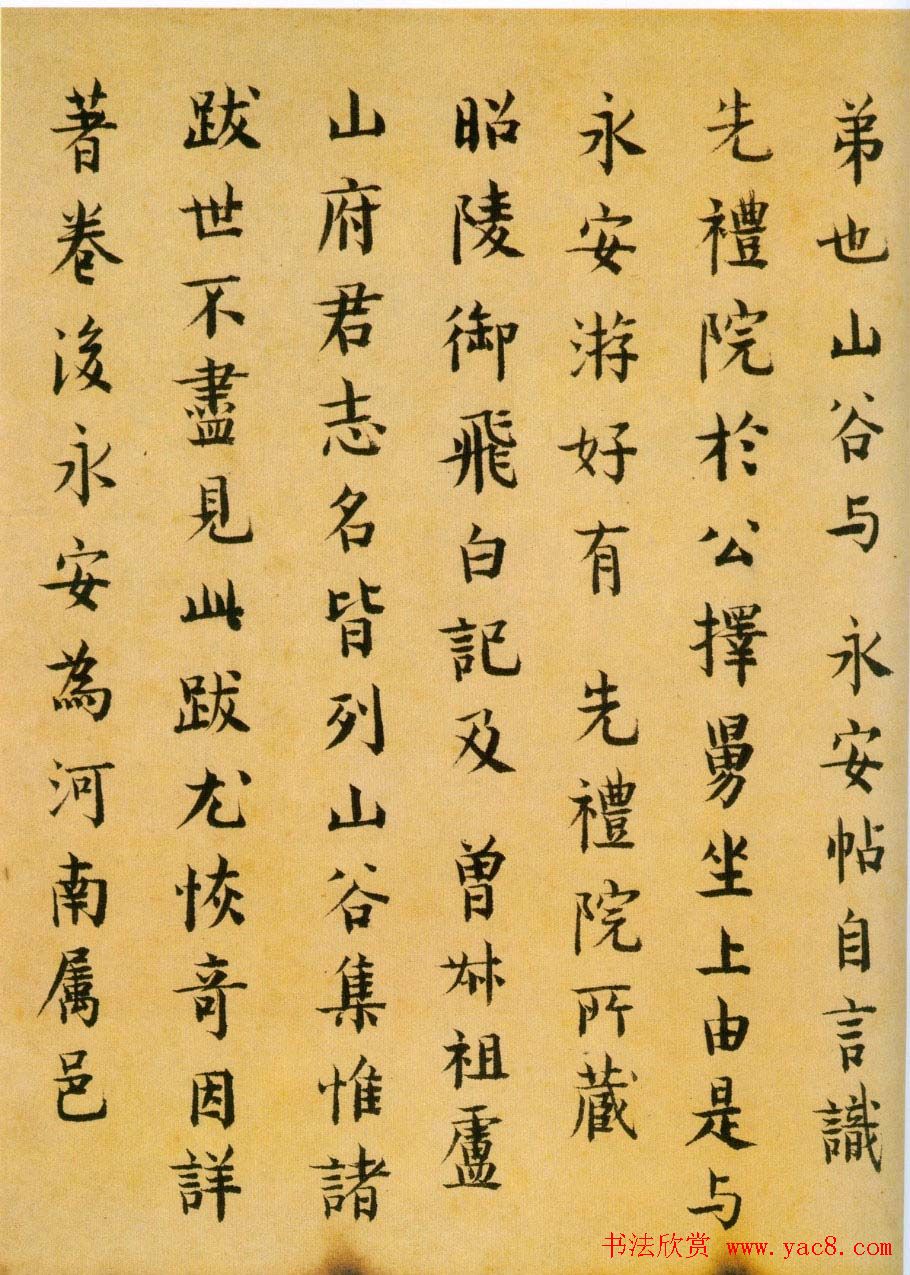 弟也山谷与 永安帖自言識
先禮院於公擇舅坐上由是与
永安游好有 先禮院所藏
昭陵御飛白記及 曾叔祖盧
山府君志名皆列山谷集惟諸
跋世不盡見此跋尤恢奇因詳
著卷後永安為河南屬邑
书法欣赏 www.yac8.com